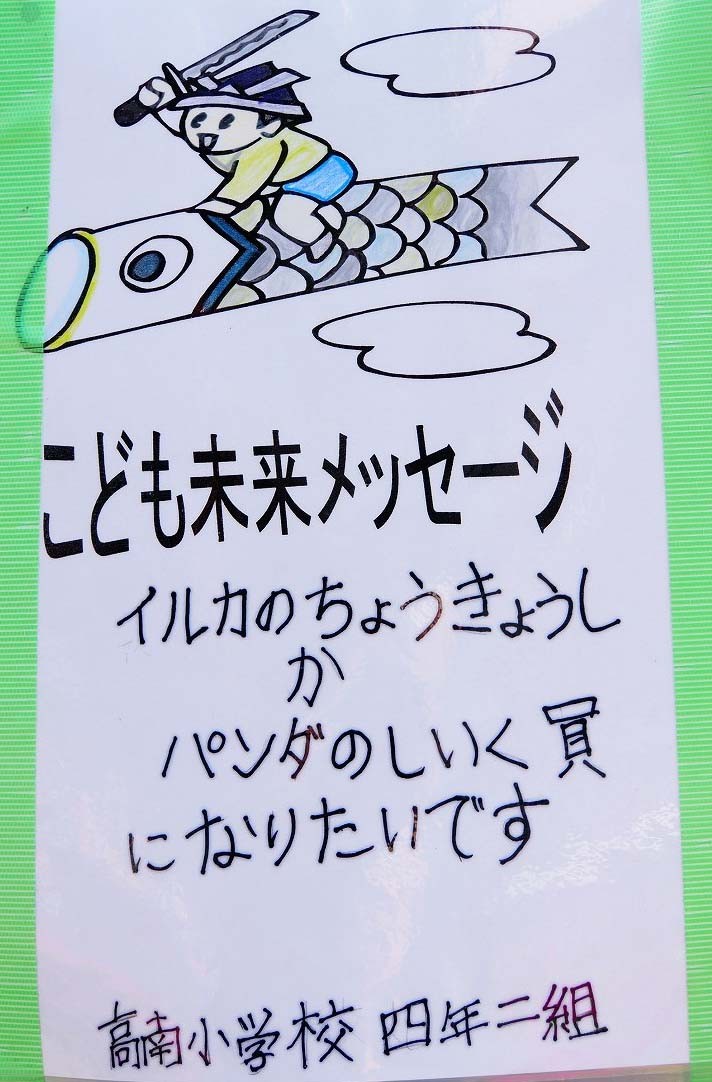 こども未来メッセージ
イルカのちょうきょうし
か
パンダのしいく員
になりたいです
高南小学校 四年二組